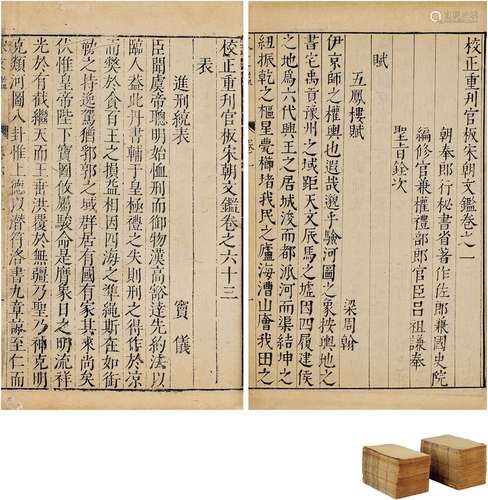 校正重刊官板宋朝文鑑卷之一
朝奉郎行秘書省著作佐郎兼國史院
編修官兼權禮部郎官臣呂祖謙奉
聖旨銓次
賦
五鳳樓賦 梁周翰
伊京師之權輿也遐哉邈乎驗河圖之象按輿地之
書宅禹貢豫州之域距天文辰馬之墟因四履建侯
之地為六代興王之居城浚而都派河而渠結坤之
紐振乾之樞星甍櫛堵我民之廬海漕山會我田之
校正重刊官板宋朝文鑑卷之六十三
表
進刑統表 竇儀
臣聞虞帝聰明始恤刑而御物漢高豁達先約法以
臨人益此丹書輔于皇極禮之失則刑之得作於涼
而弊於貪百王之損益相因四海之準繩斯在如銜
轡之持逸駕猶郛郭之域群居有國有家其來尚矣
伏惟皇帝陛下寶圖攸屬駿命是膺象日之明流祥
光於有截繼天而王垂洪覆於無疆乃聖乃神克明
克類河圖八卦惟上德以潛符洛書九章諒至仁而